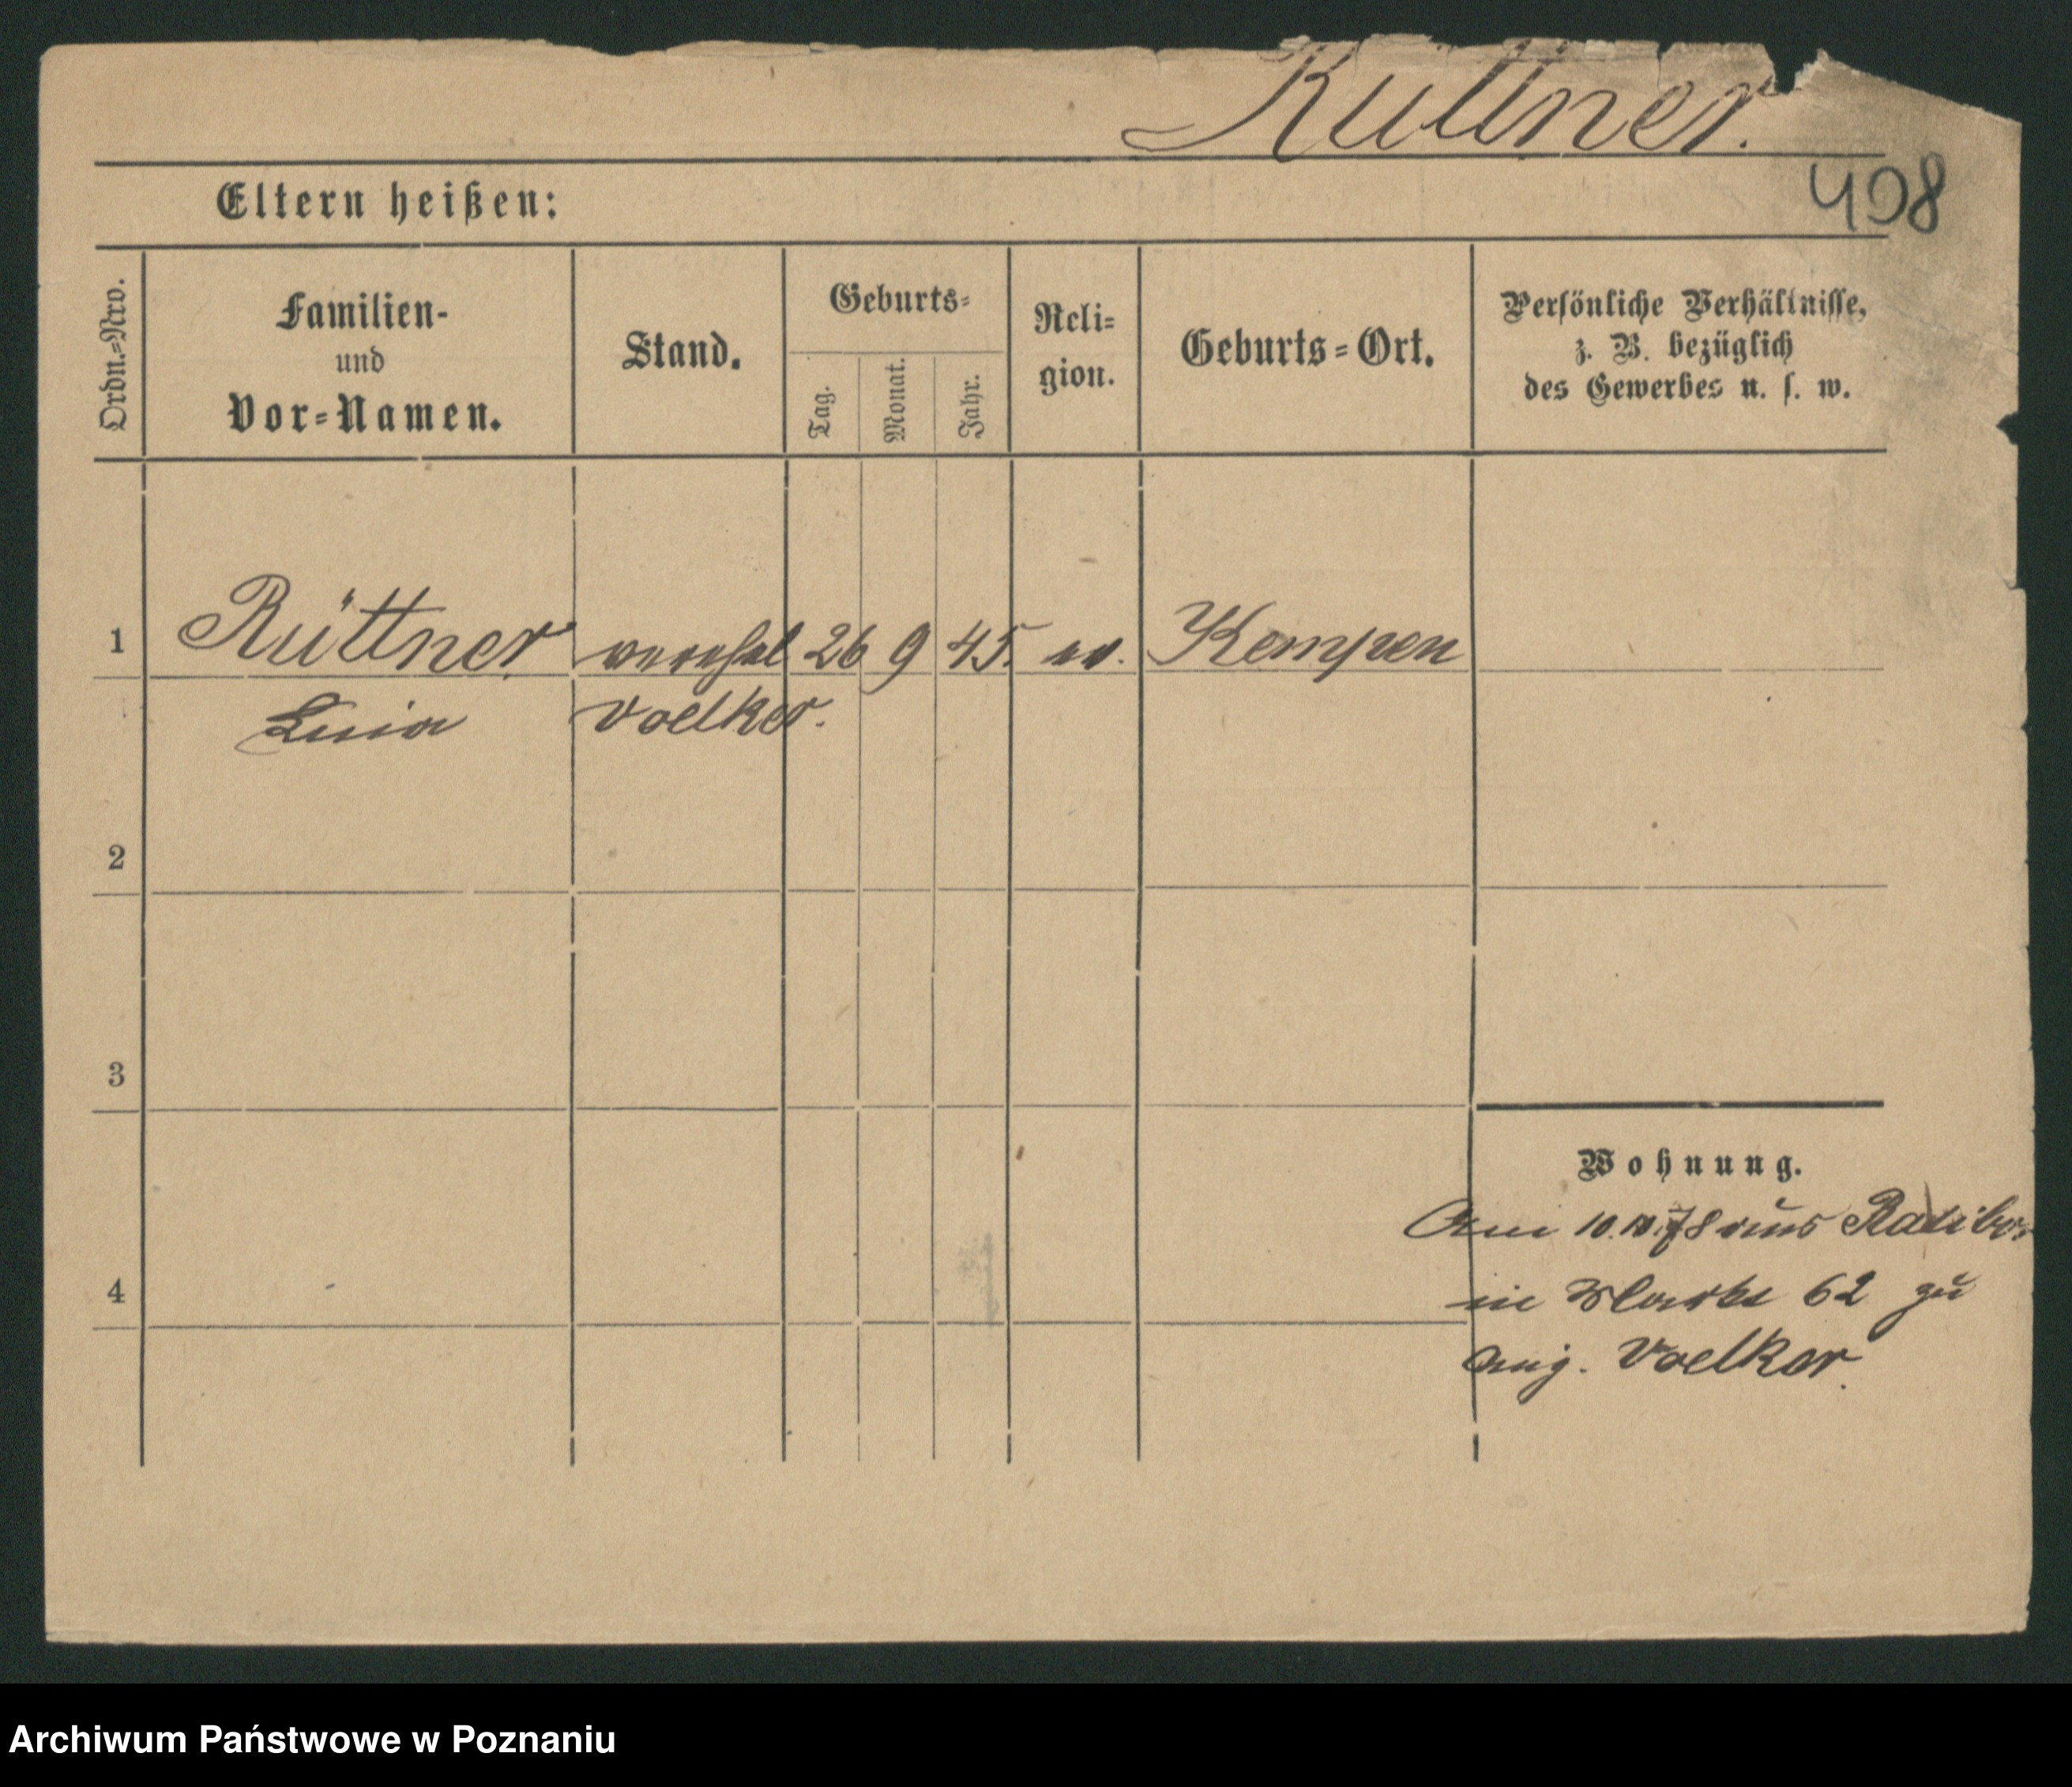 Rüttner.
408
Eltern heißen:
Ordn.-Nro.
Familien-
und
Vor-Namen.
Stand.
Geburts-
Tag.
Monat.
Jahr.
Reli-
gion.
Geburts-Ort.
Persönliche Verhältnisse,
z. B. bezüglich
des Gewerbes u. s. w.
1 Rüttner 26 9 45. ev. Kempen
Voelker.
2
3
Wohnung.
Am 10. 10. 78 aus Ratibor
4
in 62 zu
Aug. Voelker.
Archiwum Państwowe w Poznaniu